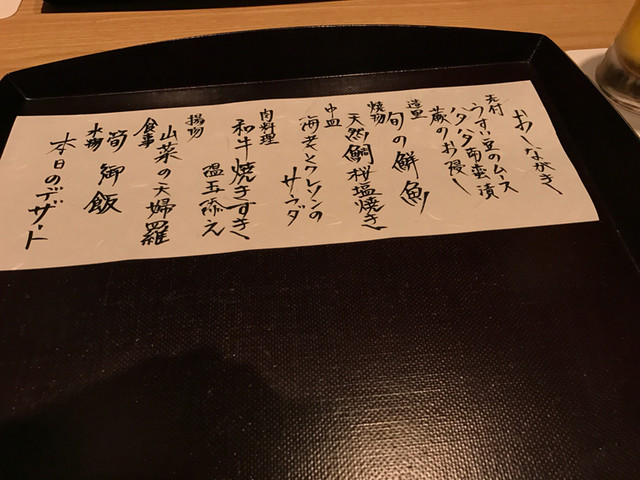 おしながき
先付
うすい豆のムース
ハタハタ南蛮漬
蕨のお浸し
造里
旬の鮮魚
焼物
天然鯛桜塩焼き
中皿
海老とクレソンの
サラダ
肉料理
和牛焼きすき
温玉添え
揚物
山菜の天婦羅
食事
筍御飯
水物
本日のデザート